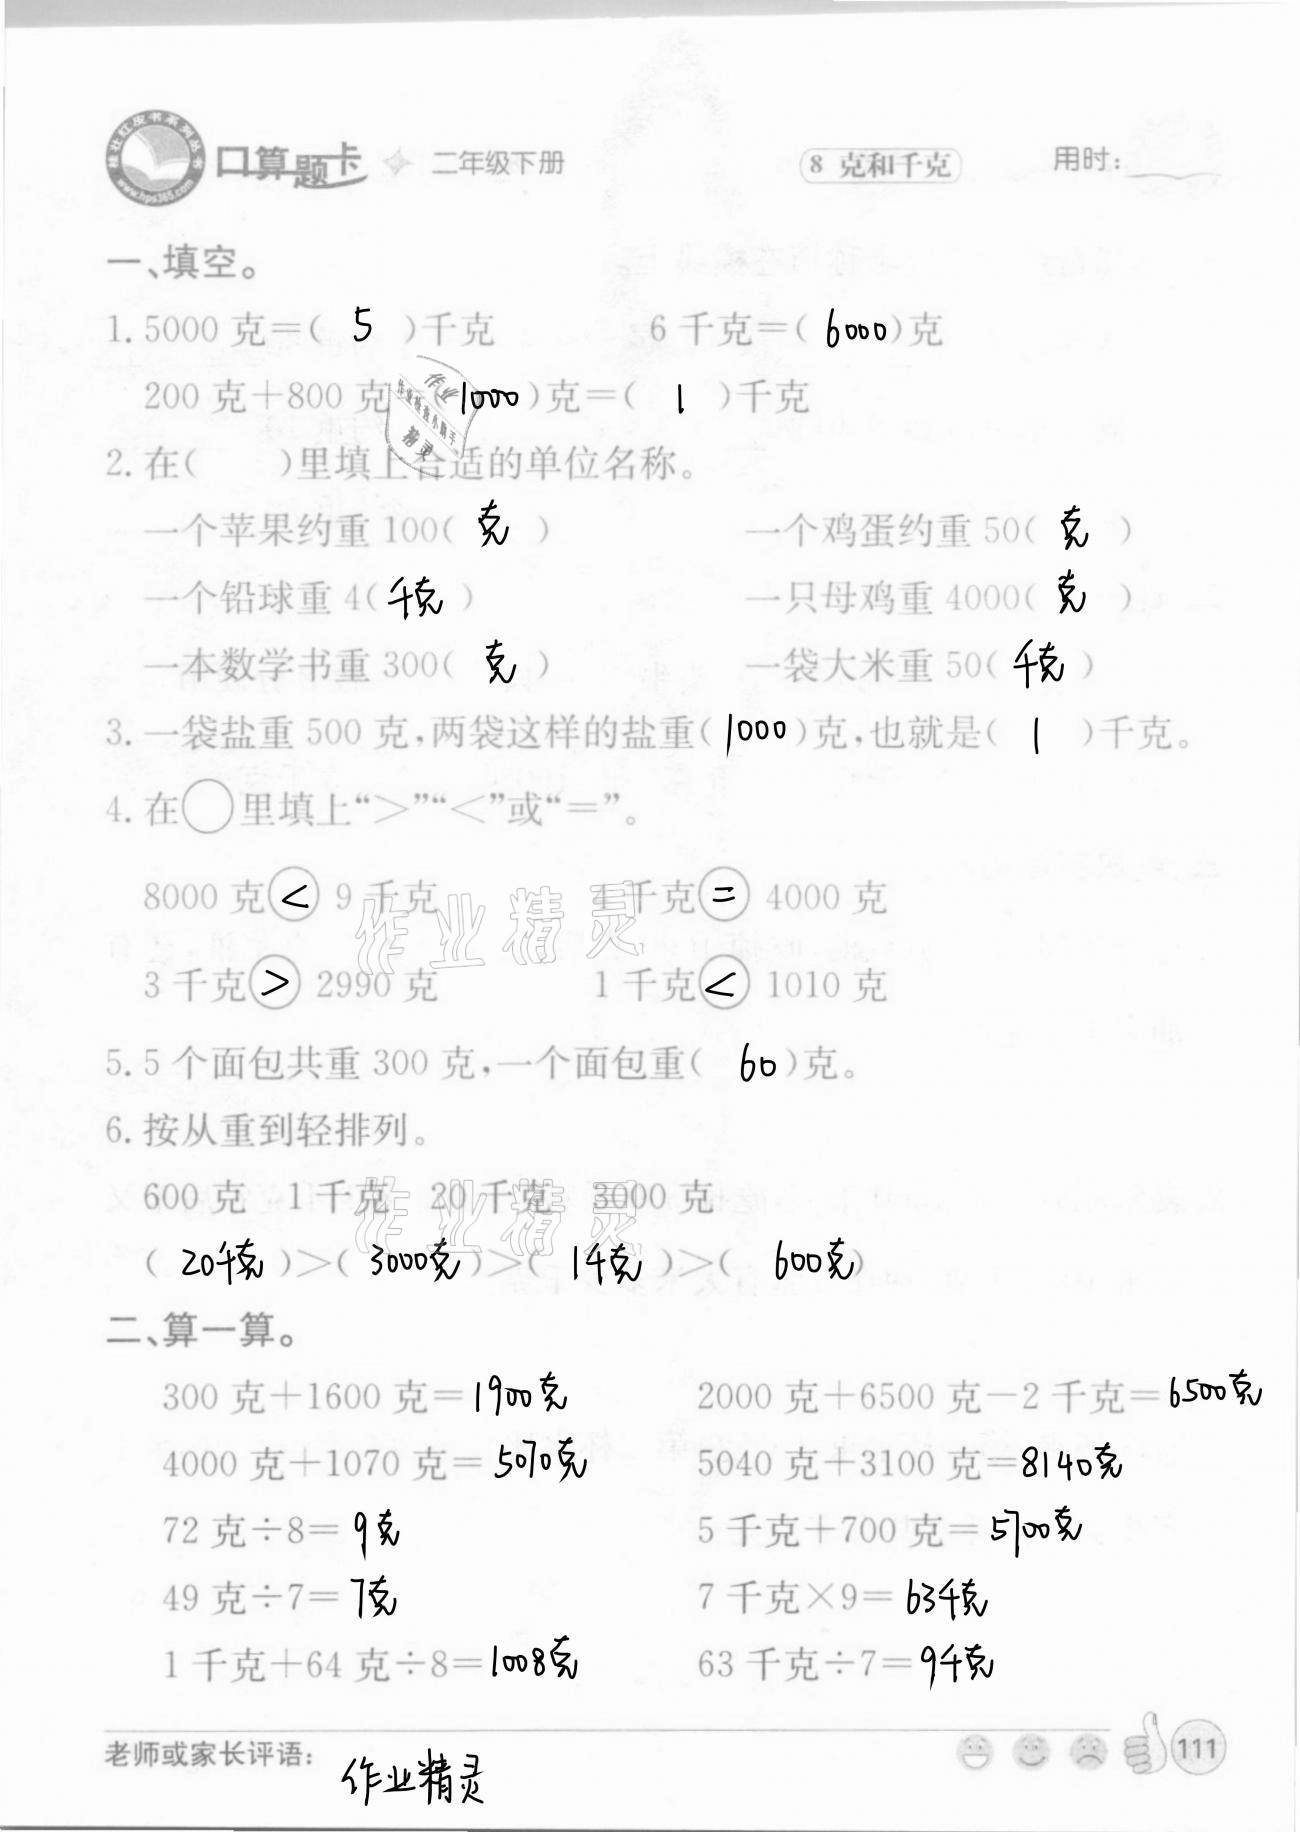 桂壮红皮书系列丛书
www.hps365.com
口算题卡 二年级下册 8 克和千克 用时:
一、填空。
1. 5000 克=( 5 )千克 6 千克=( 6000 )克
200 克+800 克 1000 )克=( 1 )千克
2. 在( )里填上合适的单位名称。
一个苹果约重 100( 克 ) 一个鸡蛋约重 50( 克 )
一个铅球重 4( 千克 ) 一只母鸡重 4000( 克 )
一本数学书重 300( 克 ) 一袋大米重 50( 千克 )
3. 一袋盐重 500 克,两袋这样的盐重( 1000 )克,也就是( 1 )千克。
4. 在○里填上“>”“<”或“=”。
8000 克 < 9 千克 4 千克 = 4000 克
3 千克 > 2990 克 1 千克 < 1010 克
5. 5 个面包共重 300 克,一个面包重( 60 )克。
6. 按从重到轻排列。
600 克 1 千克 20 千克 3000 克
( 20千克 )>( 3000克 )>( 1千克 )>( 600克 )
二、算一算。
300 克+1600 克= 1900克 2000 克+6500 克-2 千克= 6500克
4000 克+1070 克= 5070克 5040 克+3100 克= 8140克
72 克÷8= 9克 5 千克+700 克= 5700克
49 克÷7= 7克 7 千克×9= 63千克
1 千克+64 克÷8= 1008克 63 千克÷7= 9千克
老师或家长评语: 作业精灵 111
作业精灵
作业精灵
作业
作业检查小助手
精灵